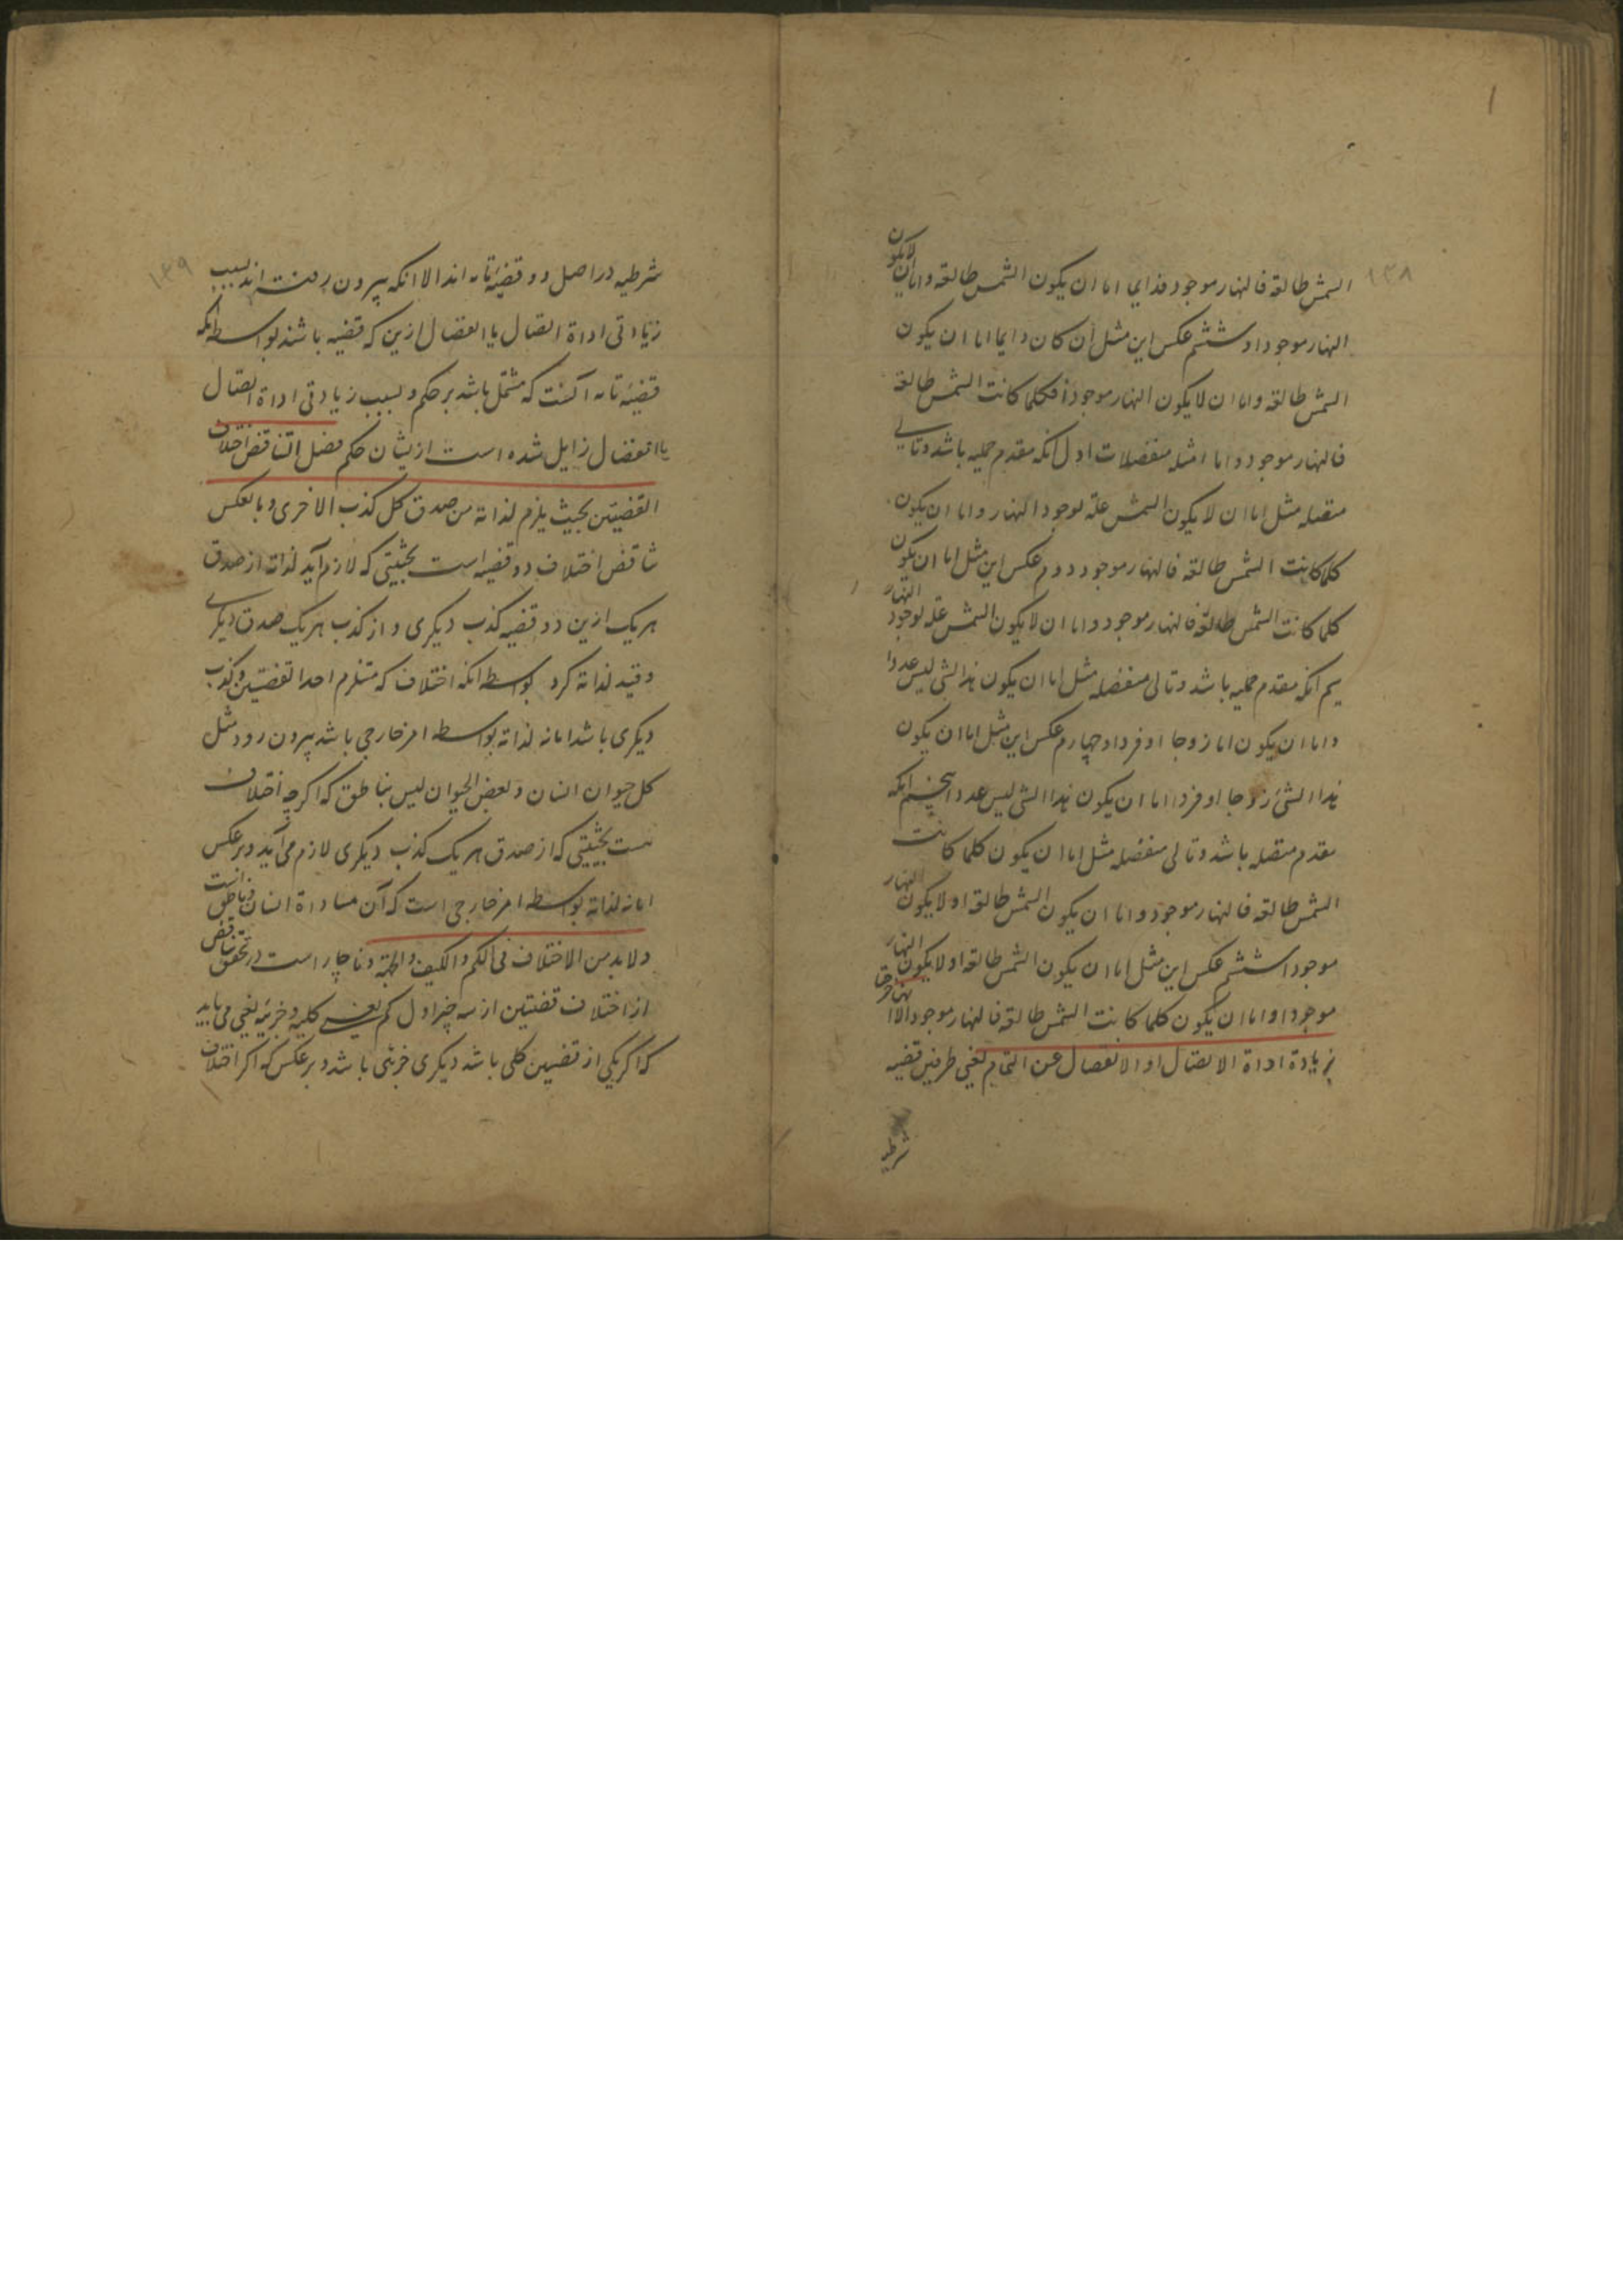 ۱۳۸
الشمس طالعة فالنهار موجود فدایما اما ان یکون الشمس طالعة واما ان لا یکون
النهار موجودا و ششم عکس این مثل ان کان دایما اما ان یکون
الشمس طالعة واما ان لا یکون النهار موجودا فکلما کانت الشمس طالعة
فالنهار موجود و اما امثله منفصلات اول انکه مقدم حملیه باشد و تالی
متصله مثل اما ان لا یکون الشمس علة لوجود النهار واما ان یکون
کلما کانت الشمس طالعة فالنهار موجود دوم عکس این مثل اما ان یکون
کلما کانت الشمس طالعة فالنهار موجود واما ان لا یکون الشمس علة لوجود النهار
سیم انکه مقدم حملیه باشد و تالی منفصله مثل اما ان یکون هذا الشی لیس عددا
واما ان یکون اما زوجا او فردا و چهارم عکس این مثل اما ان یکون
هذا الشئ زوجا او فردا اما ان یکون هذا الشی لیس عددا پنجم انکه
مقدم متصله باشد و تالی منفصله مثل اما ان یکون کلما کانت
الشمس طالعة فالنهار موجود واما ان یکون الشمس طالعة او لا یکون النهار
موجودا ششم عکس این مثل اما ان یکون الشمس طالعة او لا یکون النهار
موجودا و اما ان یکون کلما کانت الشمس طالعة فالنهار موجود الا انهما خرجتا
بزیادة اداة الاتصال او الانفصال عن التمام یعنی طرفین قضیه
شرطیه
۱۳۹
شرطیه در اصل دو قضیه تامه اند الا انکه بیرون رفته اند بسبب
زیادتی اداة اتصال یا انفصال ازین که قضیه باشند بواسطه انکه
قضیه تامه آنست که مشتمل باشد بر حکم و بسبب زیادتی اداة اتصال
یا انفصال زایل شده است ازیشان حکم فصل التناقض اختلاف
القضیتین بحیث یلزم لذاته من صدق کل کذب الاخری وبالعکس
تناقض اختلاف دو قضیه است بحیثیتی که لازم آید لذاته از صدق
هر یک ازین دو قضیه کذب دیکری و از کذب هر یک صدق دیکری
و قید لذاته کرد بواسطه انکه اختلاف که مستلزم احد القضیتین و کذب
دیکری باشد اما نه لذاته بواسطه امر خارجی باشد بیرون رود مثل
کل حیوان انسان و بعض الحیوان لیس بناطق که اکرچه اختلاف
هست بحیثیتی که از صدق هر یک کذب دیکری لازم می آید و بر عکس
اما نه لذاته بواسطه امر خارجی است که آن مساواة انسان و ناطق است
ولا بد من الاختلاف فی الکم والکیف والجهة و ناچار است در تحقق تناقض
از اختلاف قضیتین از سه چیز اول کم یعنی کلیه و جزئیه یعنی می باید
که اکر یکی از قضیتین کلی باشد دیکری جزئی باشد و بر عکس که اکر اختلاف